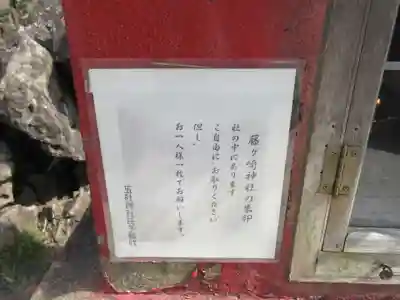 藤ヶ崎神社の朱印
社の中にあります
ご自由にお取りください
但し、
お一人様一枚でお願いします。